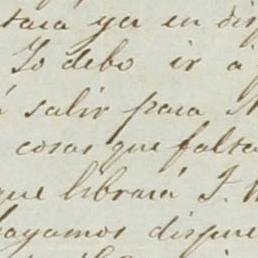 ya en
Yo debo ir á
salir para
cosas que falta
que librará J.
hayamos dispue